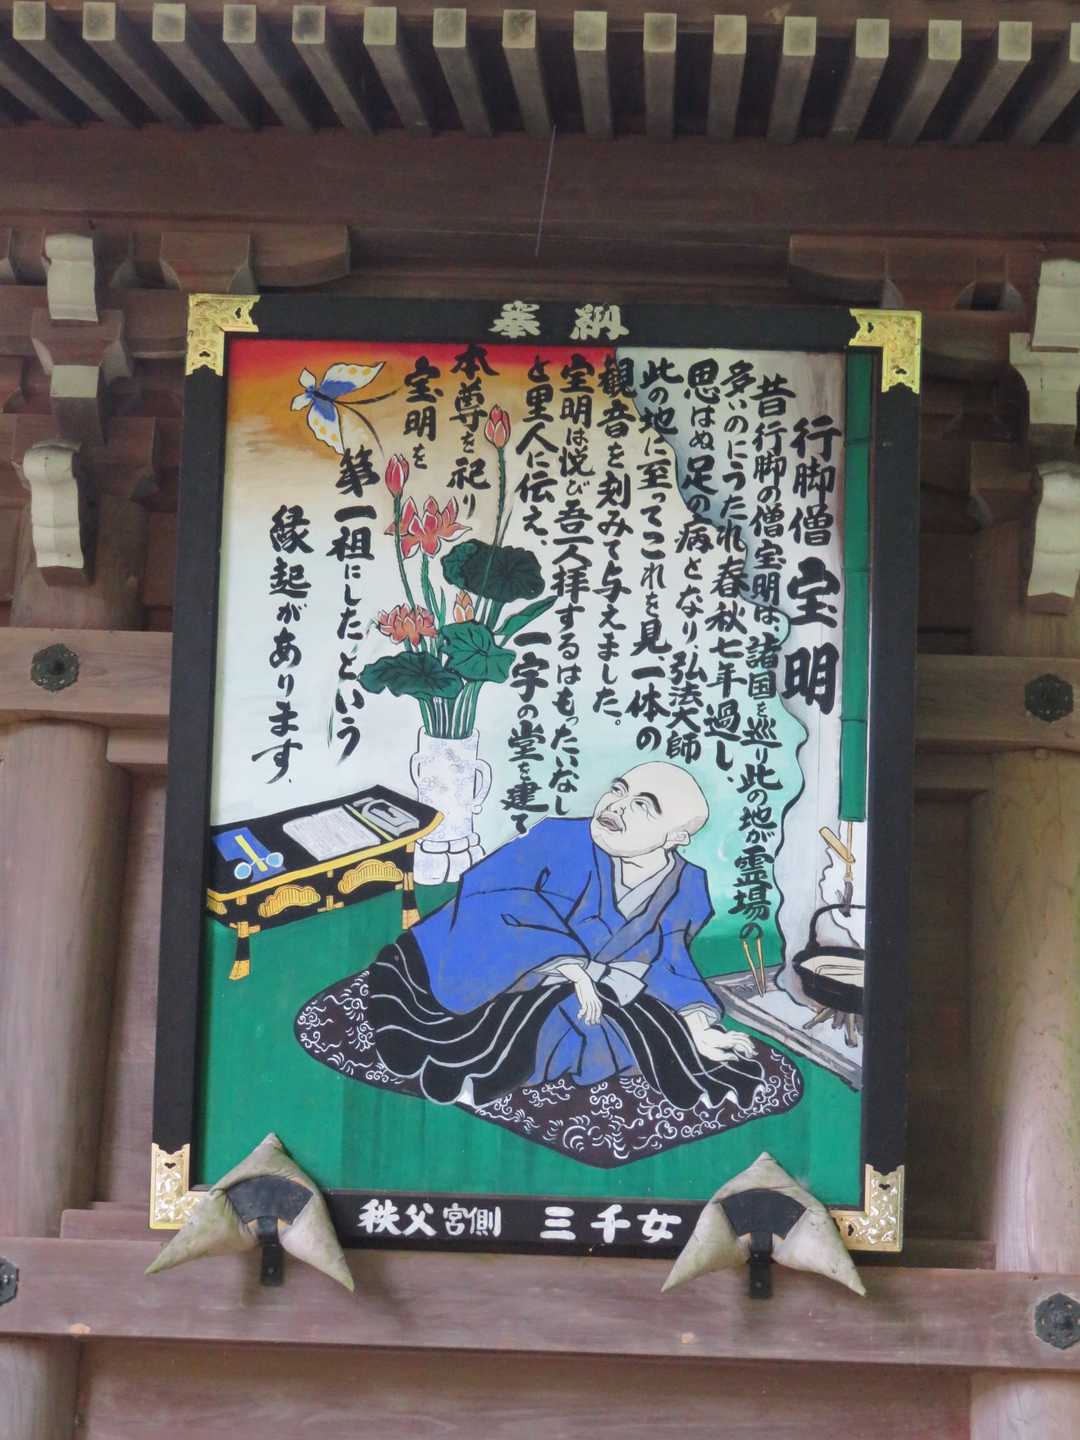 奉納
行脚僧 宝明
昔行脚の僧宝明は、諸国を巡り此の地が霊場の
多いのにうたれ春秋七年過し、
思はぬ足の病となり、弘法大師
此の地に至ってこれを見、一体の
観音を刻みて与えました。
宝明は悦び吾一人拝するはもったいなし
と里人に伝え、一宇の堂を建て
本尊を祀り
宝明を
第一祖にした、という
縁起があります。
秩父宮側 三千女